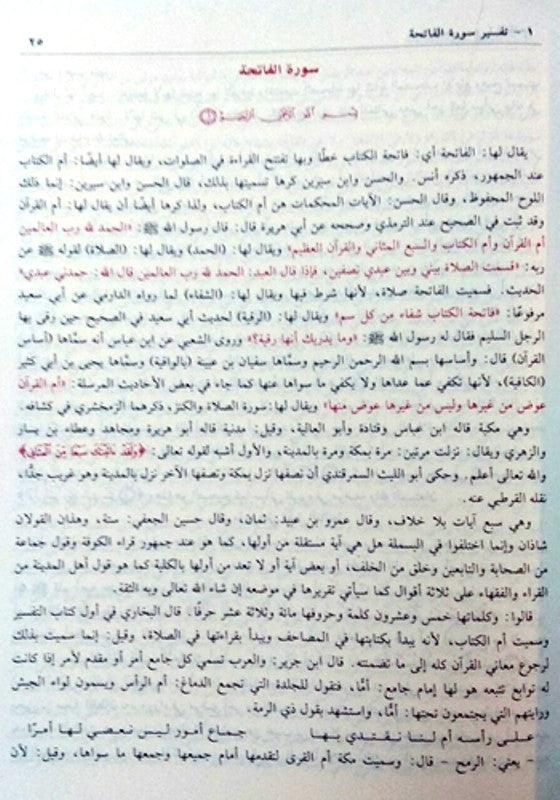 ١ - تفسير سورة الفاتحة ٢٥
سورة الفاتحة
بسم الله الرحمن الرحيم ١
يقال لها: الفاتحة أي: فاتحة الكتاب خطًا وبها تفتتح القراءة في الصلوات، ويقال لها أيضًا: أم الكتاب
عند الجمهور، ذكره أنس. والحسن وابن سيرين كرها تسميتها بذلك، قال الحسن وابن سيرين: إنما ذلك
اللوح المحفوظ، وقال الحسن: الآيات المحكمات هن أم الكتاب، ولذا كرها أيضًا أن يقال لها: أم القرآن
وقد ثبت في الصحيح عند الترمذي وصححه عن أبي هريرة قال: قال رسول الله ﷺ: «الحمد لله رب العالمين
أم القرآن وأم الكتاب والسبع المثاني والقرآن العظيم» ويقال لها: (الحمد) ويقال لها: (الصلاة) لقوله ﷺ عن
ربه: «قسمت الصلاة بيني وبين عبدي نصفين، فإذا قال العبد: الحمد لله رب العالمين قال الله: حمدني عبدي»
الحديث. فسميت الفاتحة صلاة، لأنها شرط فيها ويقال لها: (الشفاء) لما رواه الدارمي عن أبي سعيد
مرفوعًا: «فاتحة الكتاب شفاء من كل سم» ويقال لها: (الرقية) لحديث أبي سعيد في الصحيح حين رقى بها
الرجل السليم فقال له رسول الله ﷺ: «وما يدريك أنها رقية؟» وروى الشعبي عن ابن عباس أنه سمَّاها (أساس
القرآن) قال: وأساسها بسم الله الرحمن الرحيم وسمَّاها سفيان بن عيينة (بالواقية) وسمَّاها يحيى بن أبي كثير
(الكافية)، لأنها تكفي عما عداها ولا يكفي ما سواها عنها كما جاء في بعض الأحاديث المرسلة: «أم القرآن
عوض من غيرها وليس من غيرها عوض منها» ويقال لها: سورة الصلاة والكنز، ذكرهما الزمخشري في كشافه.
وهي مكية قاله ابن عباس وقتادة وأبو العالية، وقيل: مدنية قاله أبو هريرة ومجاهد وعطاء بن يسار
والزهري ويقال: نزلت مرتين: مرة بمكة ومرة بالمدينة، والأول أشبه لقوله تعالى: ﴿ولقد آتيناك سبعا من المثاني﴾
والله تعالى أعلم. وحكى أبو الليث السمرقندي أن نصفها نزل بمكة ونصفها الآخر نزل بالمدينة وهو غريب جدًا،
نقله القرطبي عنه.
وهي سبع آيات بلا خلاف، وقال عمرو بن عبيد: ثمان، وقال حسين الجعفي: ستة، وهذان القولان
شاذان وإنما اختلفوا في البسملة هل هي آية مستقلة من أولها، كما هو عند جمهور قراء الكوفة وقول جماعة
من الصحابة والتابعين وخلق من الخلف، أو بعض آية أو لا تعد من أولها بالكلية كما هو قول أهل المدينة من
القراء والفقهاء على ثلاثة أقوال كما سيأتي تقريرها في موضعه إن شاء الله تعالى وبه الثقة.
قالوا: وكلماتها خمس وعشرون كلمة وحروفها مائة وثلاثة عشر حرفًا. قال البخاري في أول كتاب التفسير
وسميت أم الكتاب، لأنه يبدأ بكتابتها في المصاحف ويبدأ بقراءتها في الصلاة، وقيل: إنما سميت بذلك
لرجوع معاني القرآن كله إلى ما تضمنته. قال ابن جرير: والعرب تسمي كل جامع أمر أو مقدم لأمر إذا كانت
له توابع تتبعه هو لها إمام جامع: أمًّا، فتقول للجلدة التي تجمع الدماغ: أم الرأس ويسمون لواء الجيش
ورايتهم التي يجتمعون تحتها: أمًّا، واستشهد بقول ذي الرمة.
على رأسه أم لنا نقتدي بها جماع أمور ليس نعصي لها أمرًا
- يعني: الرمح - قال: وسميت مكة أم القرى لتقدمها أمام جميعها وجمعها ما سواها، وقيل: لأن